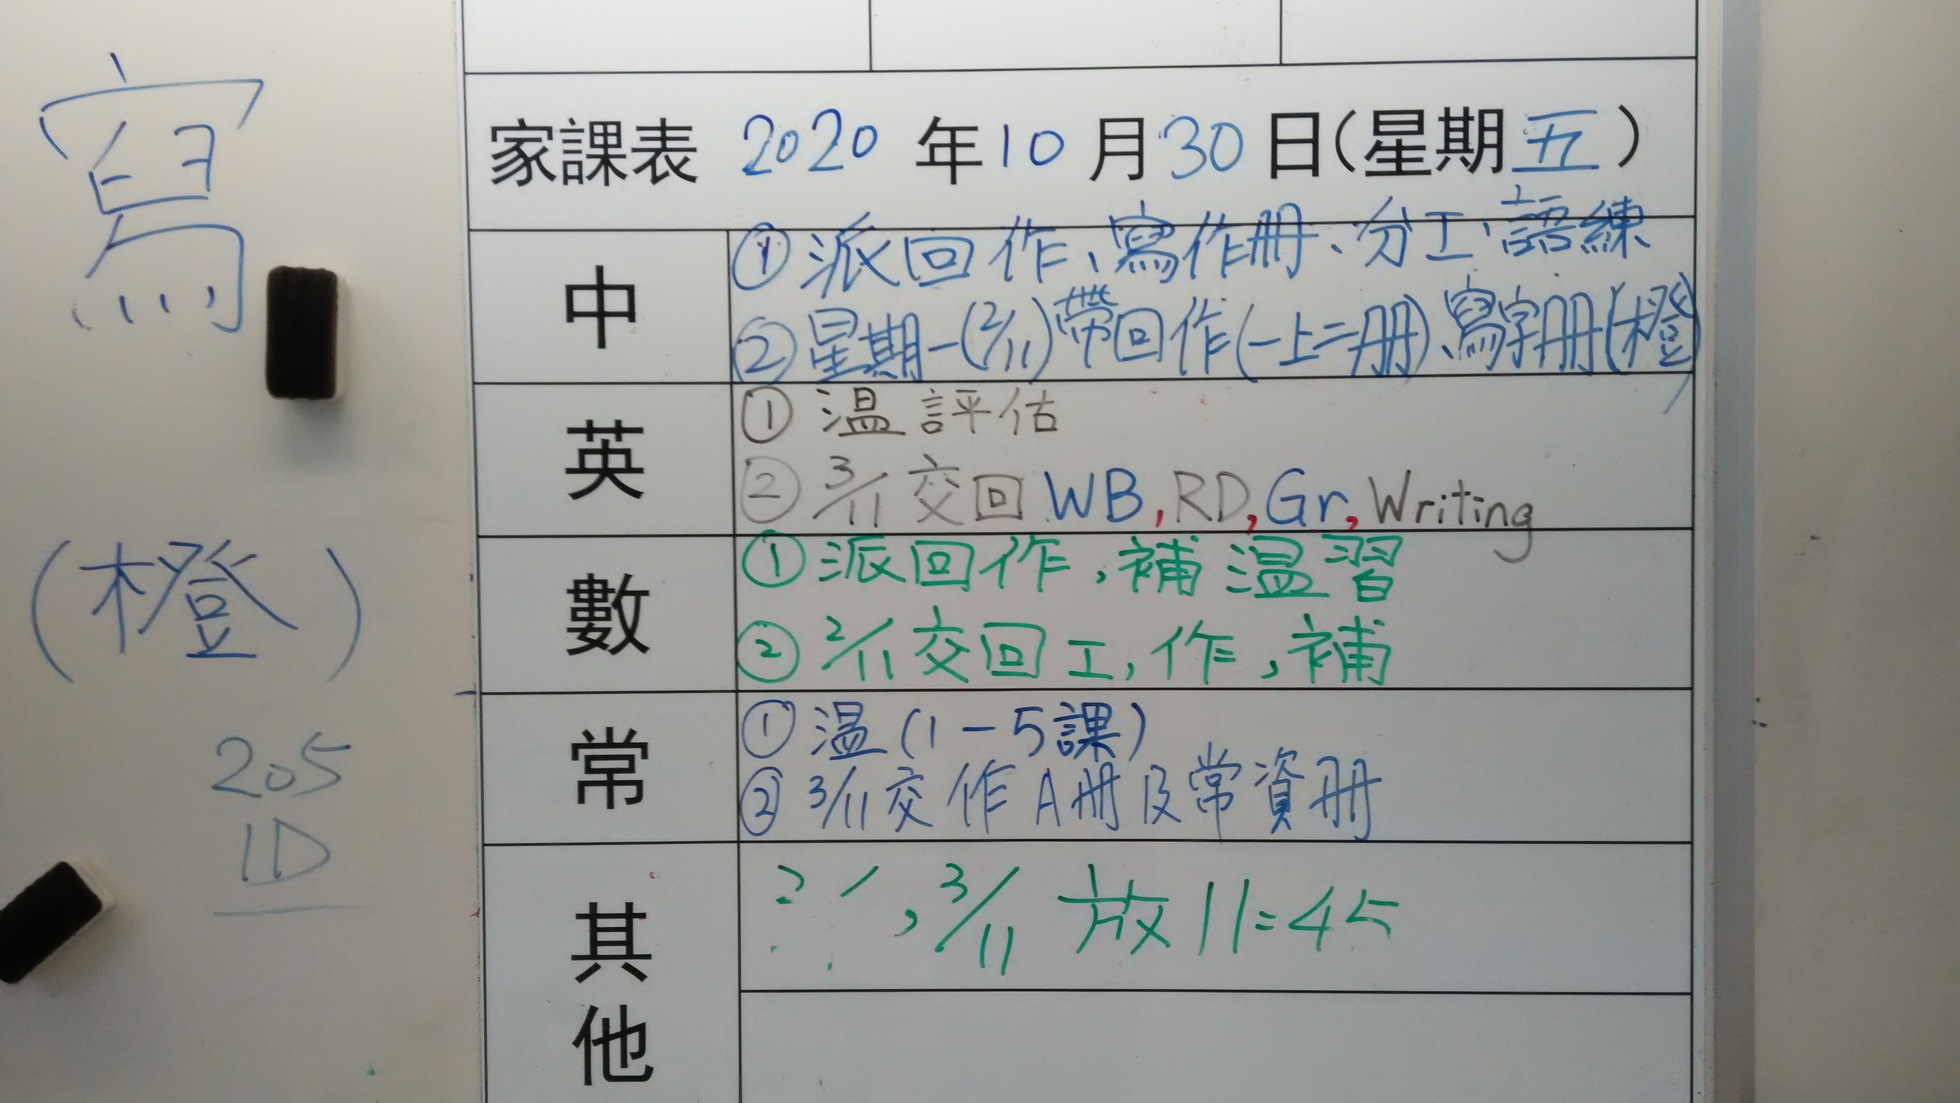 寫
(橙)
205
1D
家課表 2020 年 10 月 30 日(星期 五)
中
① 派回作、寫作冊、分工、語練
② 星期一(2/11)帶回作(一上二冊)、寫字冊(橙)
英
① 溫評估
② 3/11 交回 WB, RD, Gr, Writing
數
① 派回作, 補溫習
② 2/11 交回工, 作, 補
常
① 溫(1-5課)
② 3/11 交作A冊及常資冊
其他
, 3/11 放 11=45